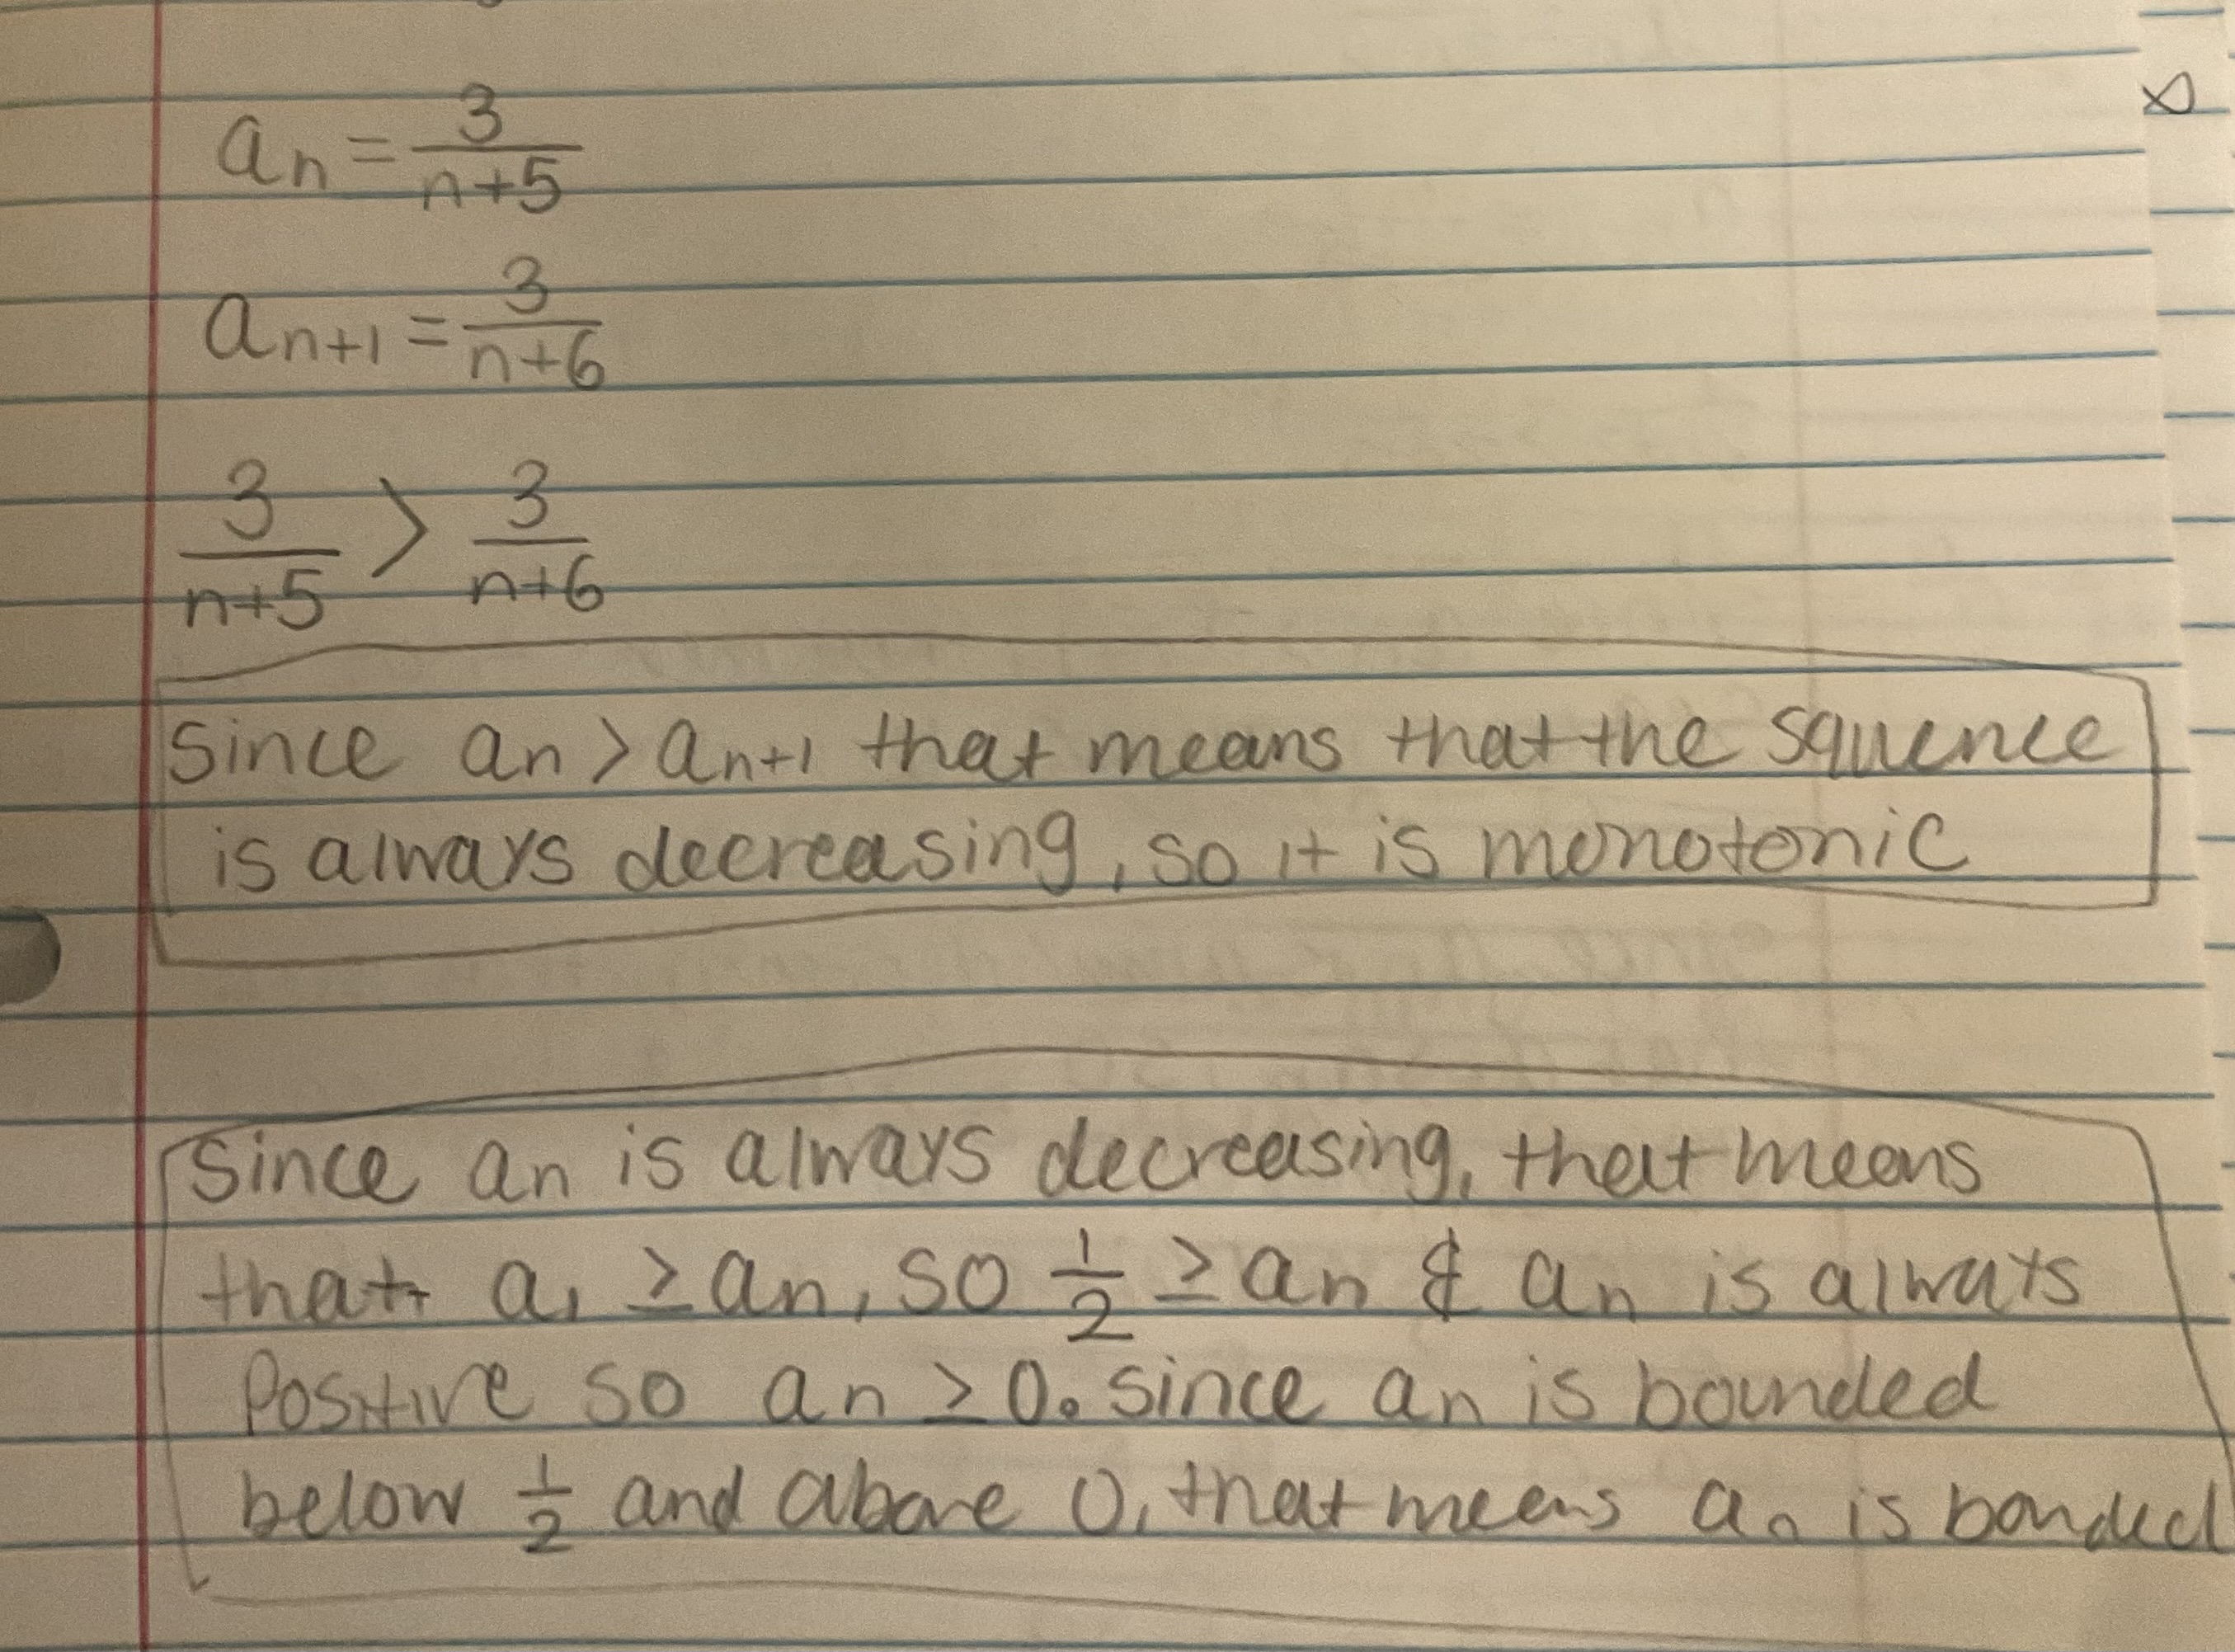 aₙ = 3/(n+5)
aₙ₊₁ = 3/(n+6)
3/(n+5) > 3/(n+6)
Since aₙ > aₙ₊₁ that means that the squence
is always decreasing, so it is monotonic
Since aₙ is always decreasing, that means
that a₁ ≥ aₙ, so 1/2 ≥ aₙ & aₙ is always
Positive so aₙ ≥ 0. since aₙ is bounded
below 1/2 and above 0, that means aₙ is bonded